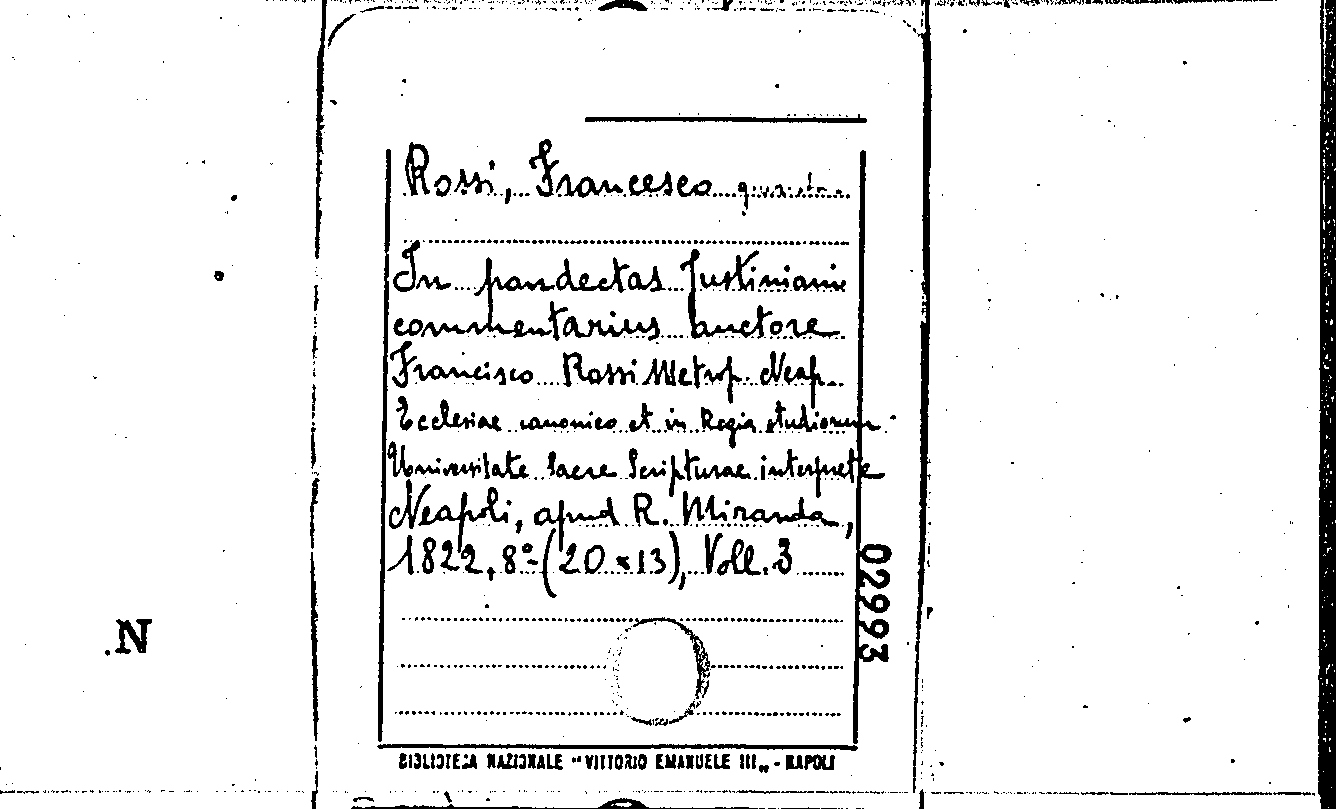 Rossi, Francesco
In pandectas Justiniani
commentarius auctore
Francisco Rossi Metrop. Neap.
Ecclesiae canonico et in Regia studiorum
Universitate Sacre Scripturae interprete
Neapoli, apud R. Miranda,
1822, 8º (20 x 13), Voll. 3
02993
.N
BIBLIOTECA NAZIONALE "VITTORIO EMANUELE III„ - NAPOLI